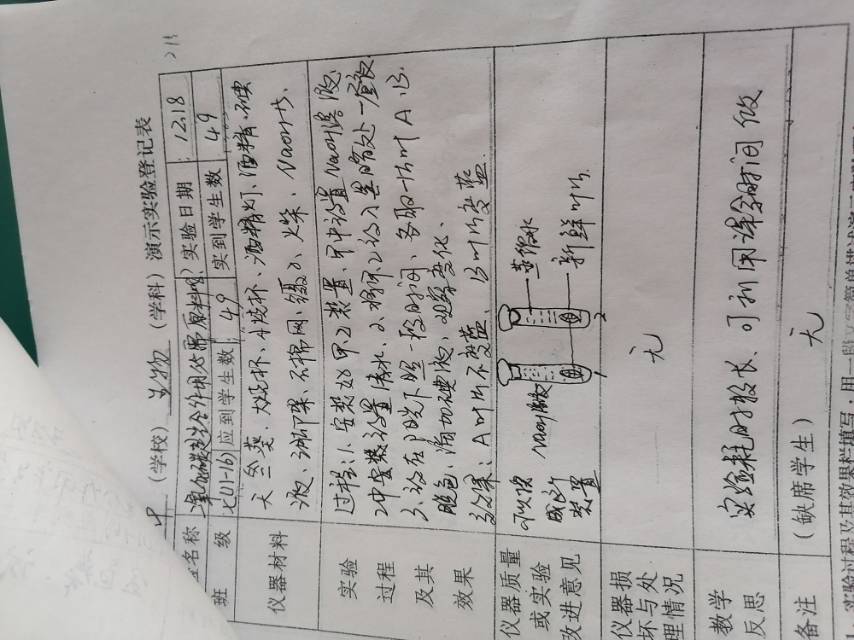 (学校) 生物 (学科) 演示实验登记表
名称 二氧化碳是光合作用必需原料吗? 实验日期: 12.18
班级 七(11-16) 应到学生数: 49 实到学生数 49
仪器材料
天竺葵、大烧杯、小烧杯、酒精灯、酒精、碘
液、三脚架、石棉网、镊子、火柴、NaOH
实验
过程
及其
效果
过程: 1. 安装好甲、乙装置、甲中放置NaOH溶液,
乙中安装放置清水、2. 将甲乙放入黑暗处一昼夜
3. 放在阳光下照一段时间、各取一片叶A、B.
脱色、滴加碘液、观察变化、
效果: A叶片不变蓝、 B叶片变蓝.
仪器质量
或实验
改进意见
可以换
成这个
装置
NaOH溶液
蒸馏水
新鲜叶片
1
2
仪器损
坏与处
理情况
无
教学
反思
实验耗时较长、可利用课余时间做
备注
(缺席学生)
无